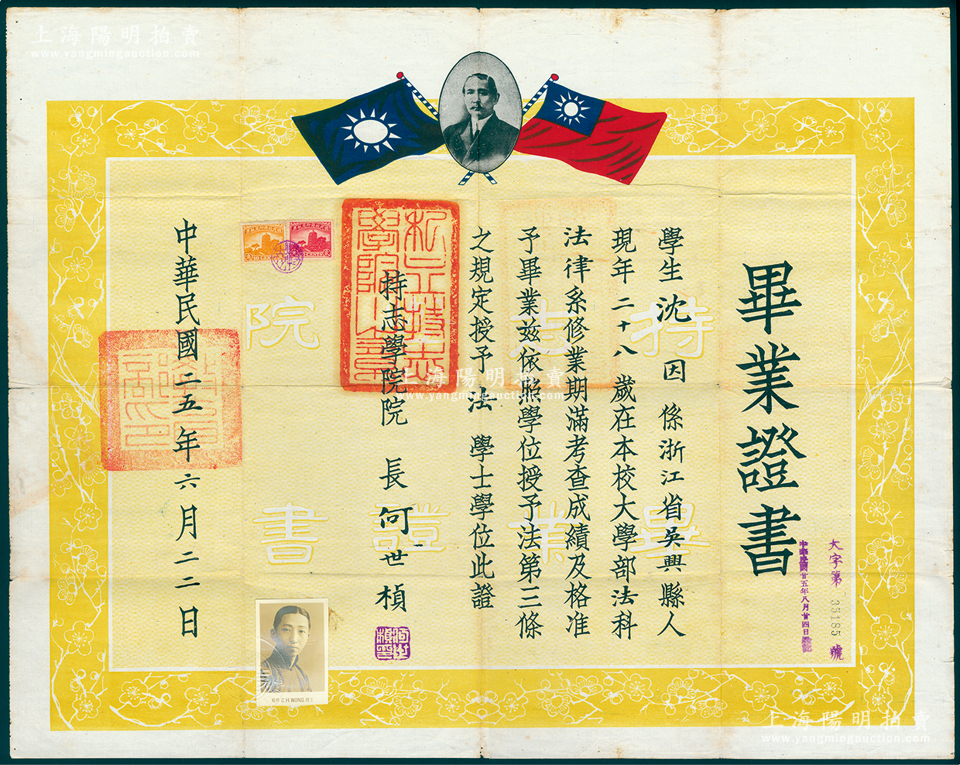 畢業證書
大字第35185號
中華民國廿五年八月廿四日驗訖
學生沈因係浙江省吳興縣人
現年二十八歲在本校大學部法科
法律系修業期滿考查成績及格准
予畢業茲依照學位授予法第三條
之規定授予法學士學位此證
持志學院院長何世楨
私立持志學院之章
何世楨印
中華民國二五年六月二二日
持志學院
畢業證書
上海陽明拍賣
www.yangmingauction.com
上海陽明拍賣
www.yangmingauction.com
上海陽明拍賣
www.yangmingauction.com